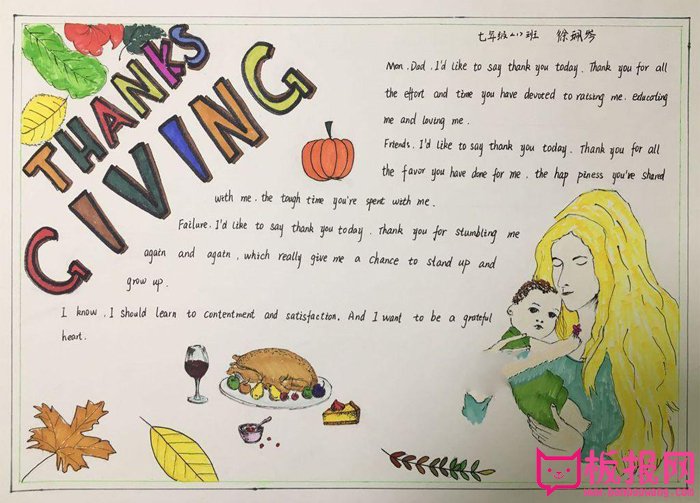 THANKS
GIVING
七年级(2)班 徐珮岑
Mom. Dad. I'd like to say thank you today. Thank you for all
the effort and time you have devoted to raising me. educating
me and loving me.
Friends. I'd like to say thank you today. Thank you for all
the favor you have done for me. the hap piness you're shared
with me. the tough time you're spent with me.
Failure. I'd like to say thank you today. Thank you for stumbling me
again and again, which really give me a chance to stand up and
grow up.
I know. I should learn to contentment and satisfaction. And I want to be a grateful
heart.
板报网